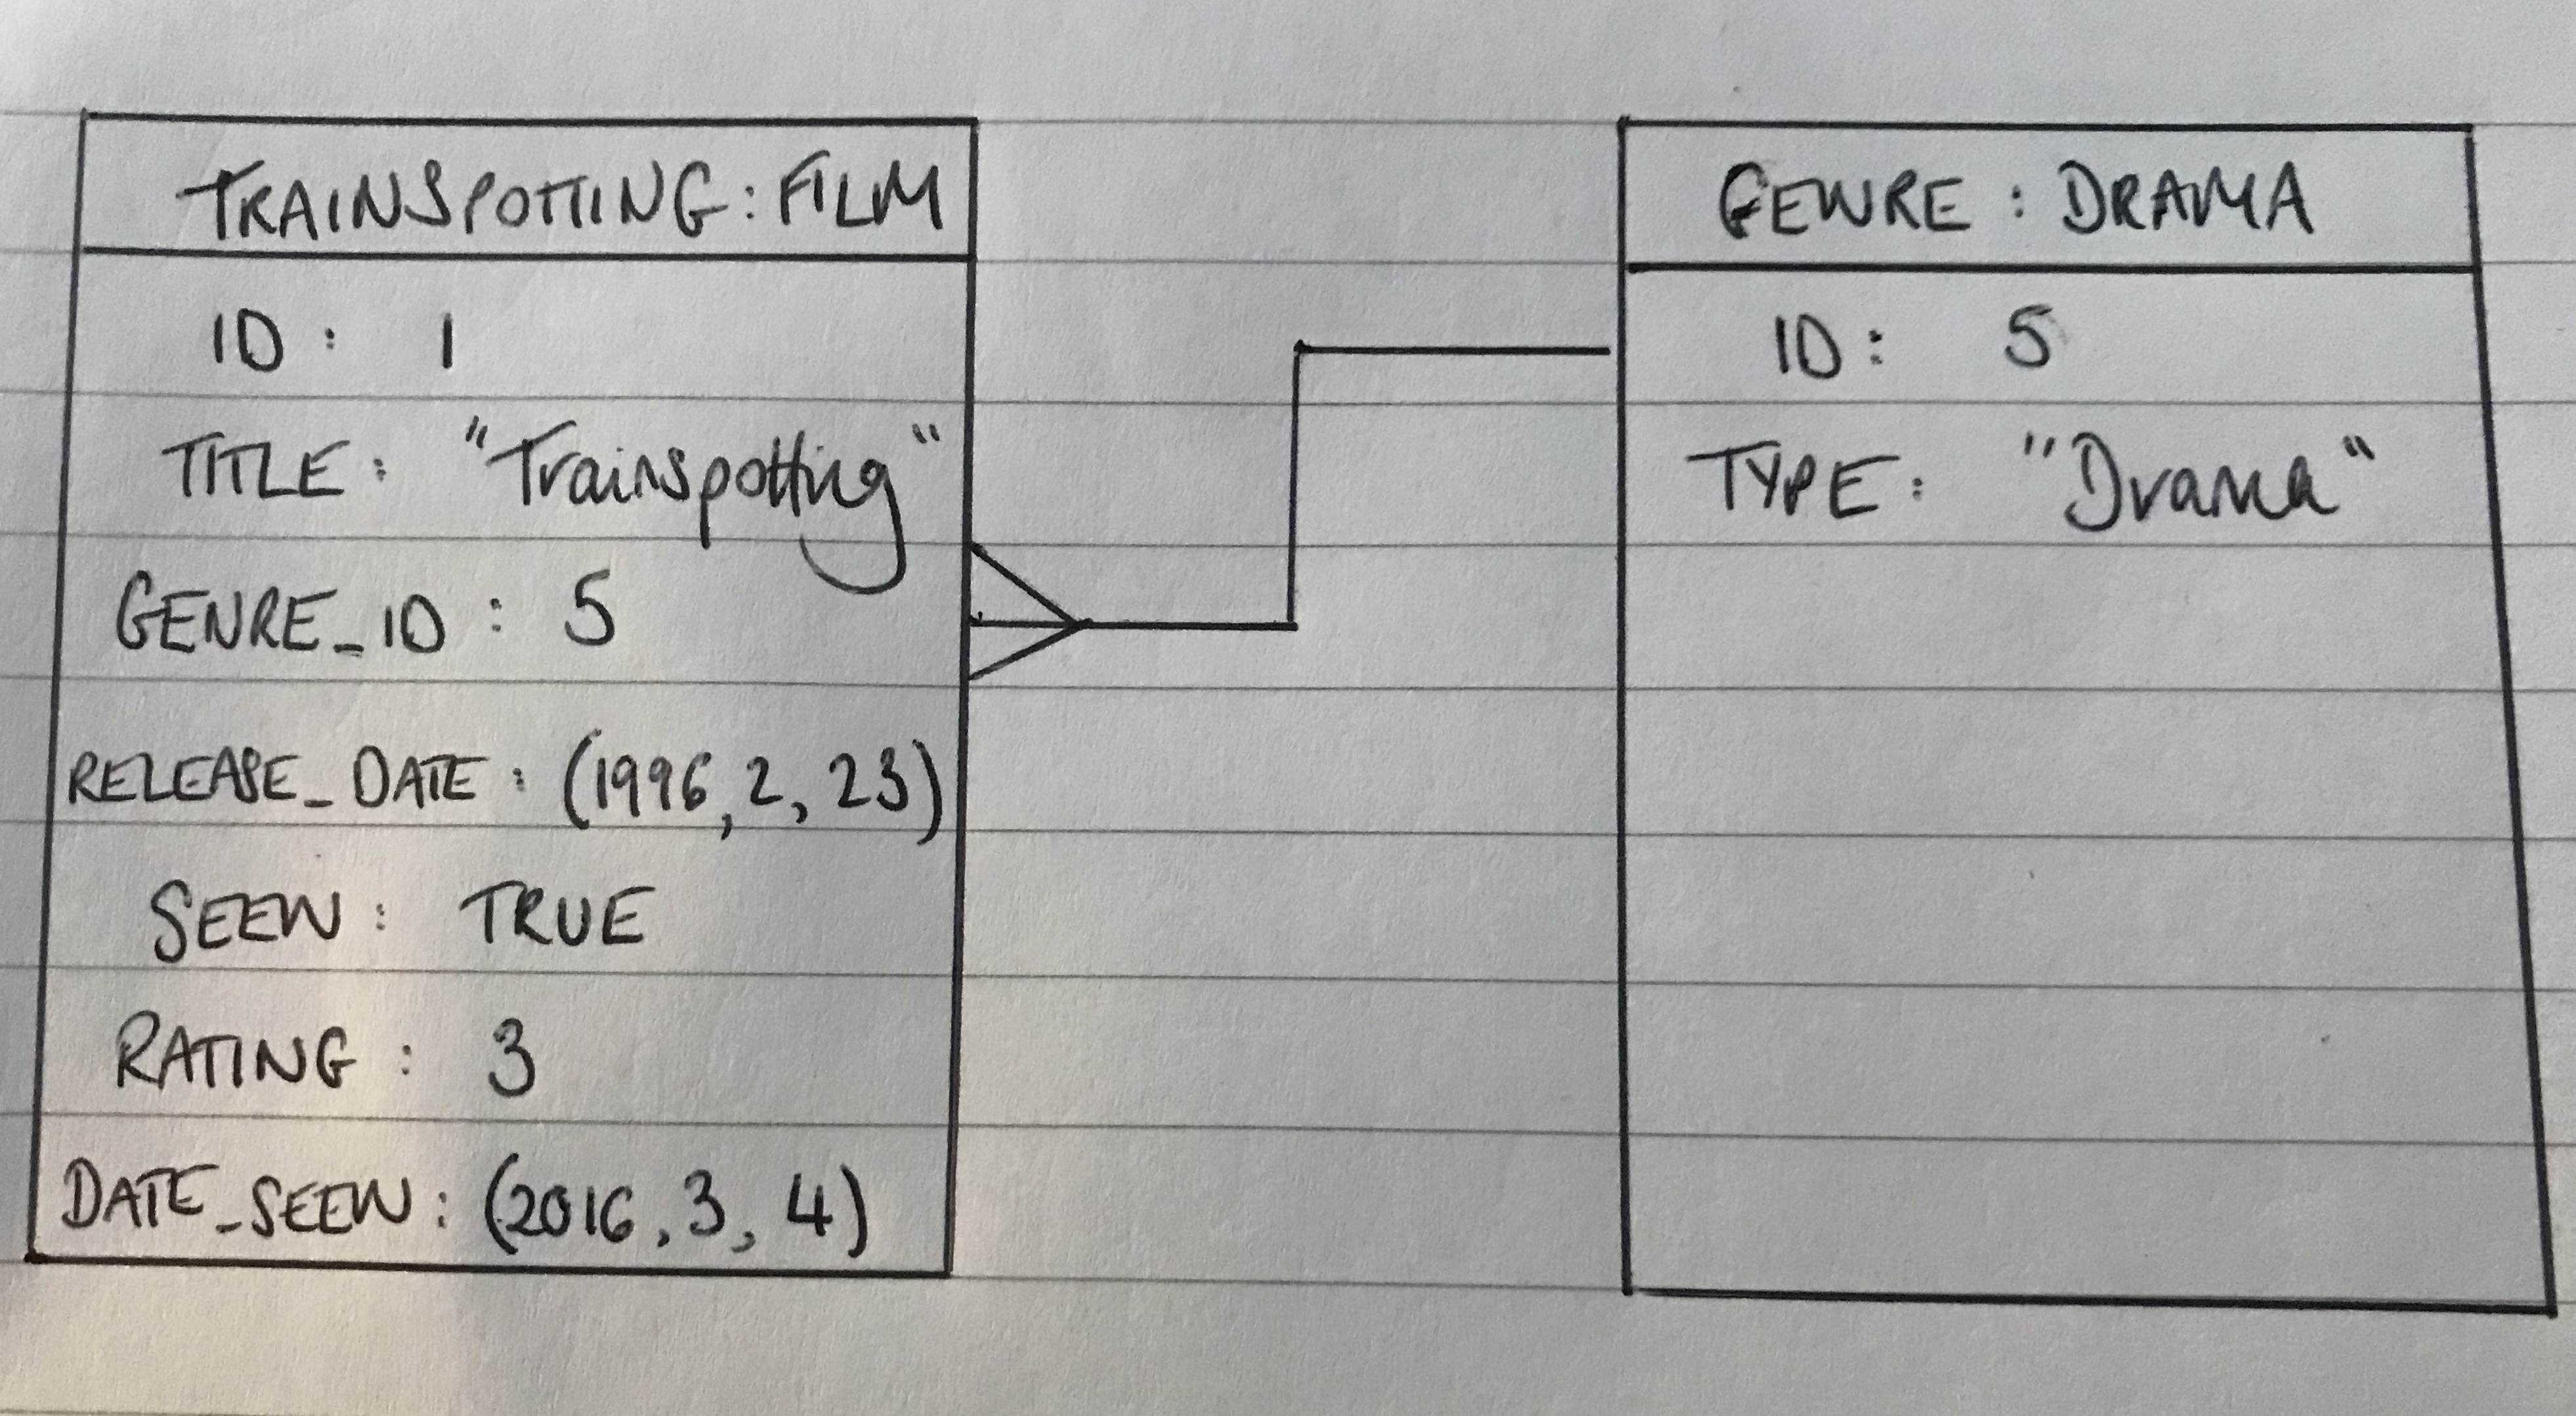 TRAINSPOTTING: FILM
ID: 1
TITLE: "Trainspotting"
GENRE_ID: 5
RELEASE_DATE: (1996, 2, 23)
SEEN: TRUE
RATING: 3
DATE_SEEN: (2016, 3, 4)
GENRE: DRAMA
ID: 5
TYPE: "Drama"